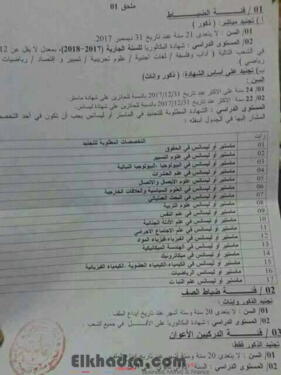 ملحق 01
01/ فئة الضباط
أ) تجنيد مباشر: ( ذكور )
01/ السن : لا يتعدى 21 سنة عند تاريخ 31 ديسمبر 2017.
المستوى الدراسي : شهادة البكالوريا للسنة الجارية (2017-2018)، بمعدل لا يقل عن 12
في الشعب التالية ( آداب وفلسفة / لغات أجنبية / علوم تجريبية / تسيير و إقتصاد / رياضيات /
رياضي )
ب) تجنيد على أساس الشهادة: ( ذكور وإناث )
01/ 24 سنة على الأكثر عند تاريخ 2017/12/31 بالنسبة للحائزين على شهادة ماستر.
02/ 22 سنة على الأكثر عند تاريخ 2017/12/31 بالنسبة للحائزين على شهادة ليسانس.
المستوى الدراسي : الشهادة المطلوبة للتجنيد في الماستر أو ليسانس يجب أن تكون في أحد التخصصات
المشار إليها في الجدول أسفله :
التخصصات المطلوبة للتجنيد
01 ماستر أو ليسانس في الحقوق
02 ماستر أو ليسانس في علوم التسيير
03 ماستر أو ليسانس في البيولوجيا ،البيولوجيا النباتية
04 ماستر أو ليسانس في علم الحشرات
05 ماستر أو ليسانس في علوم الإعلام والاتصال
06 ماستر أو ليسانس في العلوم السياسية والعلاقات الخارجية
07 ماستر أو ليسانس في البحث العملياتي
08 ماستر أو ليسانس في علوم التربية
09 ماستر أو ليسانس في علم النفس
10 ماستر أو ليسانس في علم الأدلة الجنائية
11 ماستر أو ليسانس في علم الاجتماع الإجرامي
12 ماستر أو ليسانس في الفيزياء ،فيزياء المواد
13 ماستر أو ليسانس في الهندسة الميكانيكية
14 ماستر أو ليسانس في ميكاترونيك
15 ماستر أو ليسانس في الكيمياء ،الكيمياء العضوية ،الكيمياء الفيزيائية
16 ماستر أو ليسانس في الرياضيات
17 ماستر أو ليسانس في علم النبات
02/ فئة ضباط الصف
تجنيد الذكور وإناث:
01/ السن : لا يتعدى 20 سنة وستة أشهر عند تاريخ إيداع الملف
المستوى الدراسي : شهادة البكالوريا على الأقل في جميع الشعب
03/ فئة الدركيين الأعوان
تجنيد الذكور فقط:
Elkhadra.com